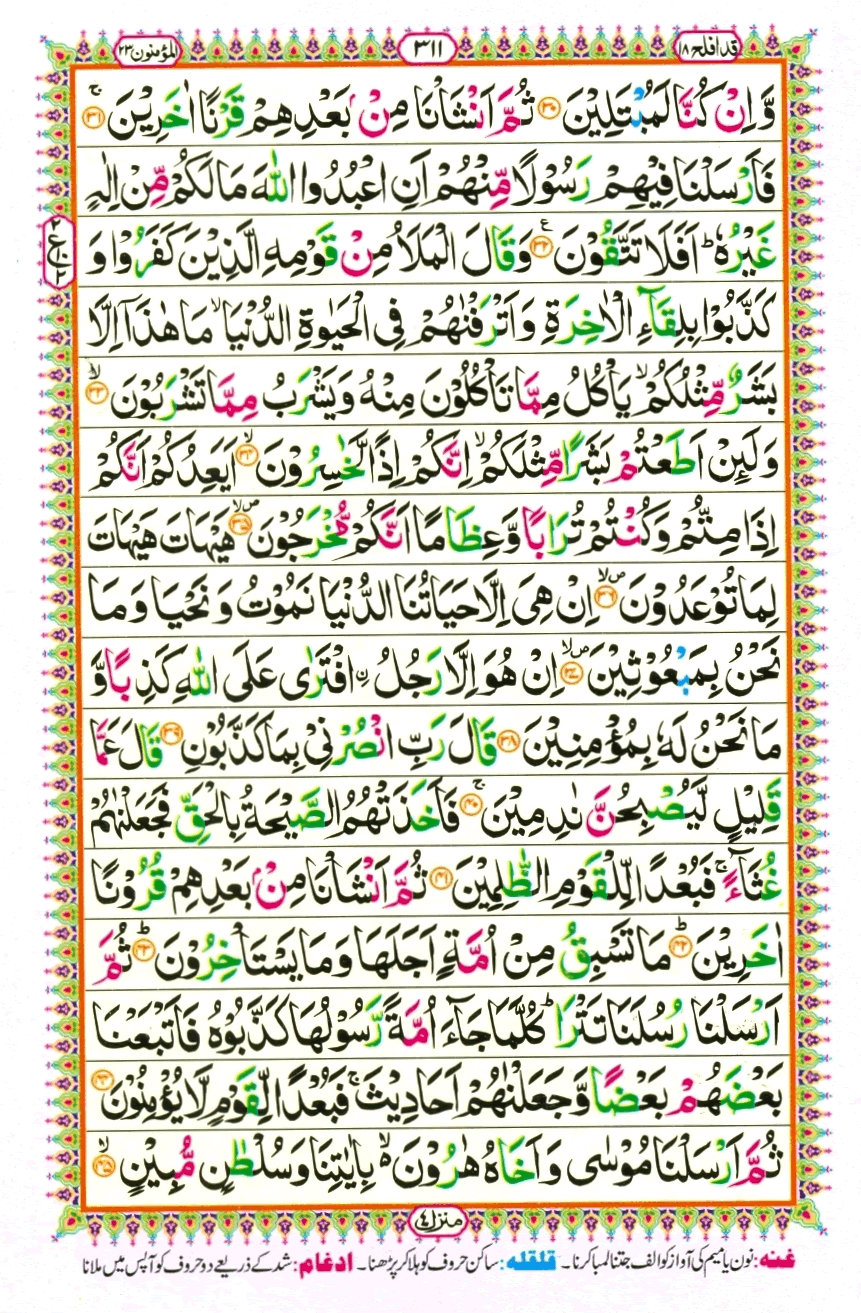 قد افلح ١٨ ٣١١ المؤمنون ٢٣
وَّاِنْ كُنَّا لَمُبْتَلِيْنَ ﴿٣٠﴾ ثُمَّ اَنْشَاْنَا مِنْۢ بَعْدِهِمْ قَرْنًا اٰخَرِيْنَ ۚ ﴿٣١﴾
فَاَرْسَلْنَا فِيْهِمْ رَسُوْلًا مِّنْهُمْ اَنِ اعْبُدُوا اللّٰهَ مَا لَكُمْ مِّنْ اِلٰهٍ
غَيْرُهٗ ؕ اَفَلَا تَتَّقُوْنَ ﴿٣٢﴾ ع وَقَالَ الْمَلَاُ مِنْ قَوْمِهِ الَّذِيْنَ كَفَرُوْا وَ
كَذَّبُوْا بِلِقَآءِ الْاٰخِرَةِ وَاَتْرَفْنٰهُمْ فِى الْحَيٰوةِ الدُّنْيَا ۙ مَا هٰذَاۤ اِلَّا
بَشَرٌ مِّثْلُكُمْ ۙ يَاْكُلُ مِمَّا تَاْكُلُوْنَ مِنْهُ وَيَشْرَبُ مِمَّا تَشْرَبُوْنَ ۙ ﴿٣٣﴾
وَلَئِنْ اَطَعْتُمْ بَشَرًا مِّثْلَكُمْ ۙ اِنَّكُمْ اِذًا لَّخٰسِرُوْنَ ۙ ﴿٣٤﴾ اَيَعِدُكُمْ اَنَّكُمْ
اِذَا مِتُّمْ وَكُنْتُمْ تُرَابًا وَّعِظَامًا اَنَّكُمْ مُّخْرَجُوْنَ ۙ ﴿٣٥﴾ هَيْهَاتَ هَيْهَاتَ
لِمَا تُوْعَدُوْنَ ۙ ﴿٣٦﴾ اِنْ هِىَ اِلَّا حَيَاتُنَا الدُّنْيَا نَمُوْتُ وَنَحْيَا وَمَا
نَحْنُ بِمَبْعُوْثِيْنَ ۙ ﴿٣٧﴾ اِنْ هُوَ اِلَّا رَجُلُ ۨ افْتَرٰى عَلَى اللّٰهِ كَذِبًا وَّ
مَا نَحْنُ لَهٗ بِمُؤْمِنِيْنَ ﴿٣٨﴾ قَالَ رَبِّ انْصُرْنِىْ بِمَا كَذَّبُوْنِ ﴿٣٩﴾ قَالَ عَمَّا
قَلِيْلٍ لَّيُصْبِحُنَّ نٰدِمِيْنَ ۚ ﴿٤٠﴾ فَاَخَذَتْهُمُ الصَّيْحَةُ بِالْحَقِّ فَجَعَلْنٰهُمْ
غُثَآءً ۚ فَبُعْدًا لِّلْقَوْمِ الظّٰلِمِيْنَ ﴿٤١﴾ ثُمَّ اَنْشَاْنَا مِنْۢ بَعْدِهِمْ قُرُوْنًا
اٰخَرِيْنَ ؕ ﴿٤٢﴾ مَا تَسْبِقُ مِنْ اُمَّةٍ اَجَلَهَا وَمَا يَسْتَاْخِرُوْنَ ؕ ﴿٤٣﴾ ثُمَّ
اَرْسَلْنَا رُسُلَنَا تَتْرَا ؕ كُلَّمَا جَآءَ اُمَّةً رَّسُوْلُهَا كَذَّبُوْهُ فَاَتْبَعْنَا
بَعْضَهُمْ بَعْضًا وَّجَعَلْنٰهُمْ اَحَادِيْثَ ۚ فَبُعْدًا لِّقَوْمٍ لَّا يُؤْمِنُوْنَ ﴿٤٤﴾
ثُمَّ اَرْسَلْنَا مُوْسٰى وَاَخَاهُ هٰرُوْنَ ۙ۬ بِاٰيٰتِنَا وَسُلْطٰنٍ مُّبِيْنٍ ۙ ﴿٤٥﴾
منزل ٤
غنه: نون یا میم کی آواز کو الف جتنا لمبا کرنا۔ قلقله: ساکن حروف کو ہلا کر پڑھنا۔ ادغام: شد کے ذریعے دو حروف کو آپس میں ملانا